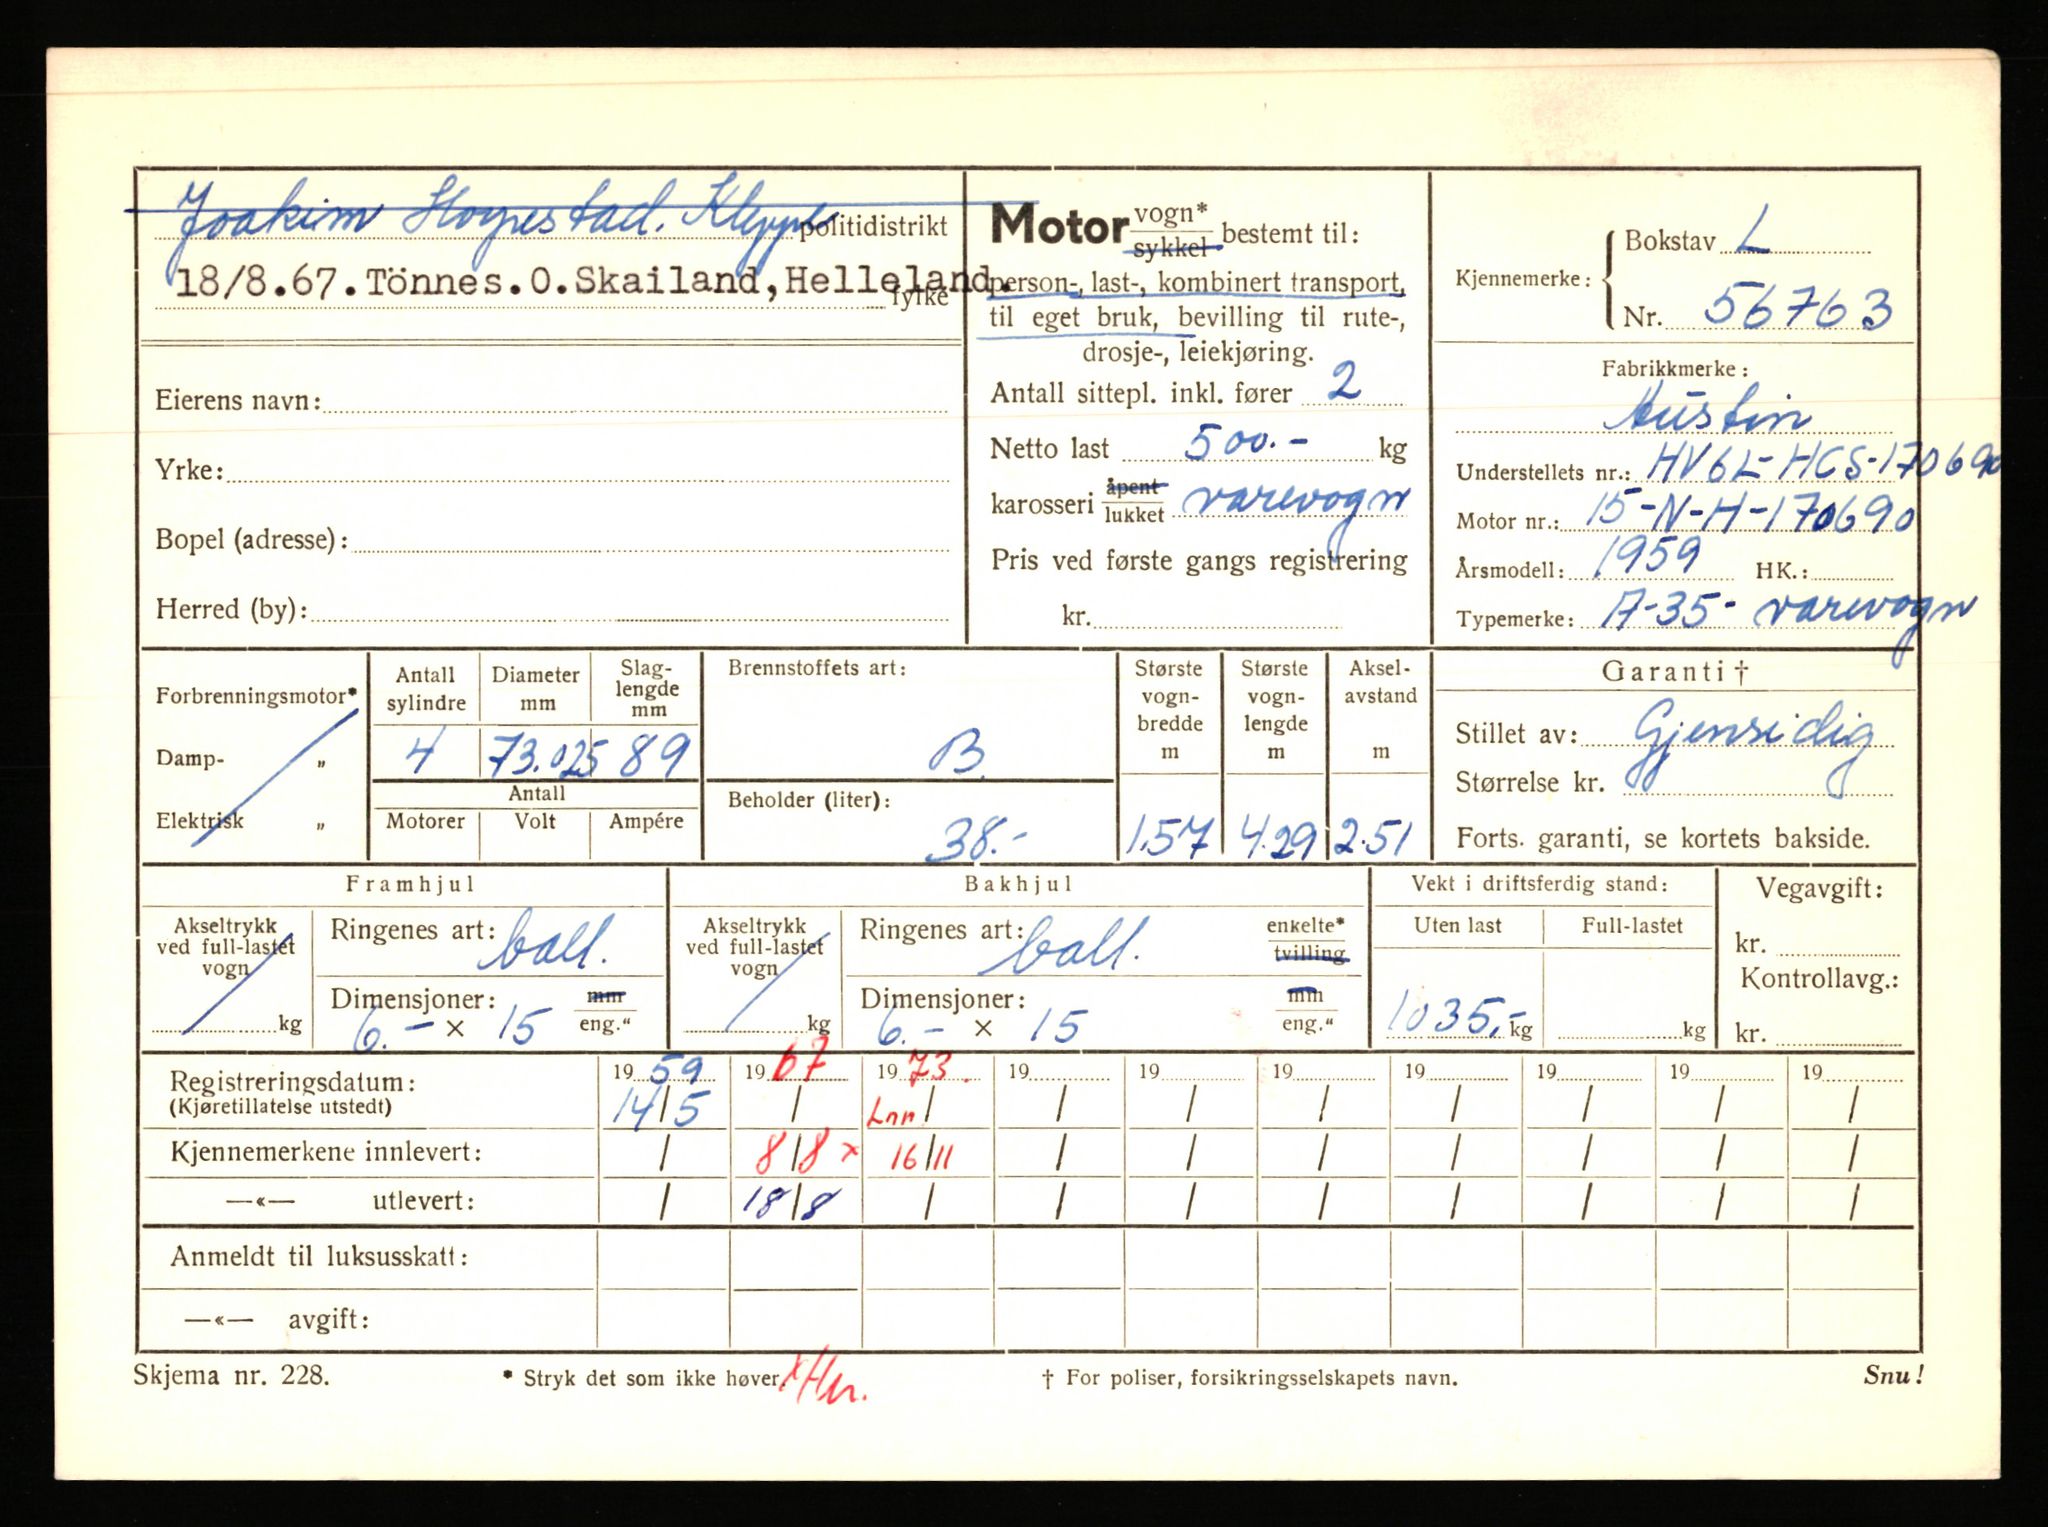 Joakim Hognestad. Kleppe politidistrikt
18/8.67.Tönnes.O.Skailand,Helleland. fylke
Eierens navn:
Yrke:
Bopel (adresse):
Herred (by):
Motor vogn* sykkel bestemt til:
person-, last-, kombinert transport,
til eget bruk, bevilling til rute-,
drosje-, leiekjøring.
Antall sittepl. inkl. fører 2
Netto last 500.- kg
karosseri åpent lukket varevogn
Pris ved første gangs registrering
kr.
Kjennemerke: Bokstav L
Nr. 56763
Fabrikkmerke:
Austin
Understellets nr.: HV6L-HCS-170690
Motor nr.: 15-N-H-170690
Årsmodell: 1959 HK.:
Typemerke: A-35- varevogn
Forbrenningsmotor*
Damp- „
Elektrisk „
Antall sylindre Diameter mm Slag-lengde mm
4 73.025 89
Antall
Motorer Volt Ampére
Brennstoffets art:
B.
Beholder (liter):
38.-
Største vogn-bredde m Største vogn-lengde m Aksel-avstand m
1.57 4.29 2.51
Garanti †
Stillet av: Gjensidig
Størrelse kr.
Forts. garanti, se kortets bakside.
Framhjul
Akseltrykk ved full-lastet vogn kg
Ringenes art: ball.
Dimensjoner: mm
6.- × 15 eng."
Bakhjul
Akseltrykk ved full-lastet vogn kg
Ringenes art: ball. enkelte* tvilling
Dimensjoner: mm
6.- × 15 eng."
Vekt i driftsferdig stand:
Uten last Full-lastet
1035,- kg kg
Vegavgift:
kr.
Kontrollavg.:
kr.
Registreringsdatum: 19 59 19 67 19 73. 19 19 19 19 19 19 19
(Kjøretillatelse utstedt) 14/5 / Lnn / / / / / / / /
Kjennemerkene innlevert: / 8/8 x 16/11 / / / / / / /
—«— utlevert: / 18/8 / / / / / / / /
Anmeldt til luksusskatt:
—«— avgift:
Skjema nr. 228. * Stryk det som ikke høver. † For poliser, forsikringsselskapets navn. Snu!